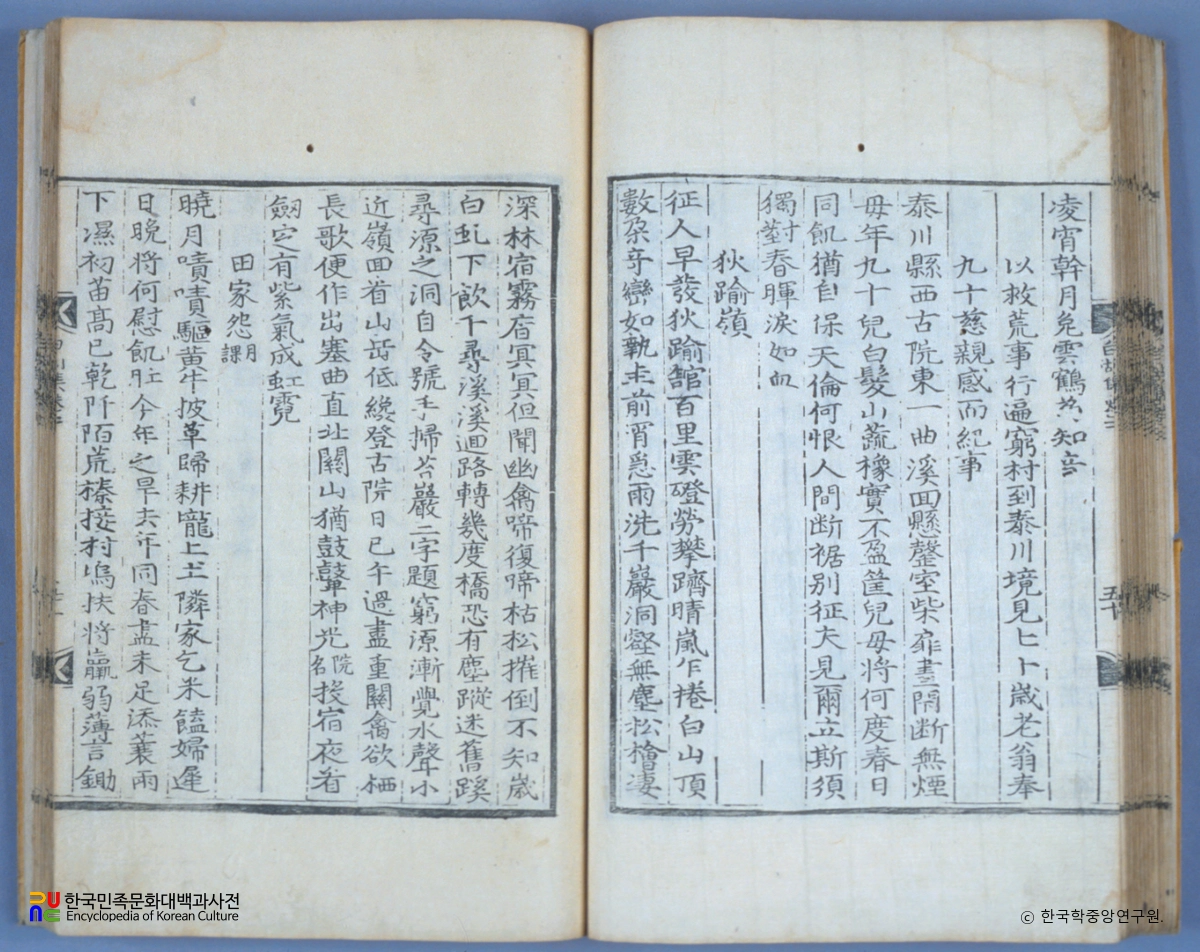 凌宵幹月兔雲鶴 知音
以救荒事行遍窮村到泰川境見七十歲老翁奉
九十慈親感而紀事
泰川縣西古院東一曲溪回懸罄室柴扉晝閉斷無煙
母年九十兒白髮山蔬橡實不盈筐兒母將何度春日
同飢猶自保天倫何恨人間断裾別征夫見爾立斯須
獨對春暉淚如血
狄踰嶺
征人早發狄踰館百里雲磴勞攀躋晴嵐乍捲白山頂
數朶奇巒如執圭前宵急雨洗千巖洞壑無塵松檜淒
深林宿霧杳冥冥但聞幽禽啼復啼枯松摧倒不知歲
白虬下飮千尋溪溪迴路轉幾度橋恐有塵蹤迷舊蹊
尋源之洞自令號手掃苔巖二字題窮源漸覺水聲小
近嶺回首山岳低纔登古院日已午過盡重關禽欲栖
長歌便作出塞曲直北關山猶鼓鼙神光院名投宿夜看
劒定有紫氣成虹霓
田家怨月課
曉月嘖嘖驅黃牛披草歸耕壠上土隣家乞米饁婦遲
日晩將何慰飢肚今年之旱去年同春盡未足添蓑雨
下濕初苗高已乾阡陌荒榛接村塢扶將羸弱薄言鋤
五十
한국민족문화대백과사전
Encyclopedia of Korean Culture
© 한국학중앙연구원.